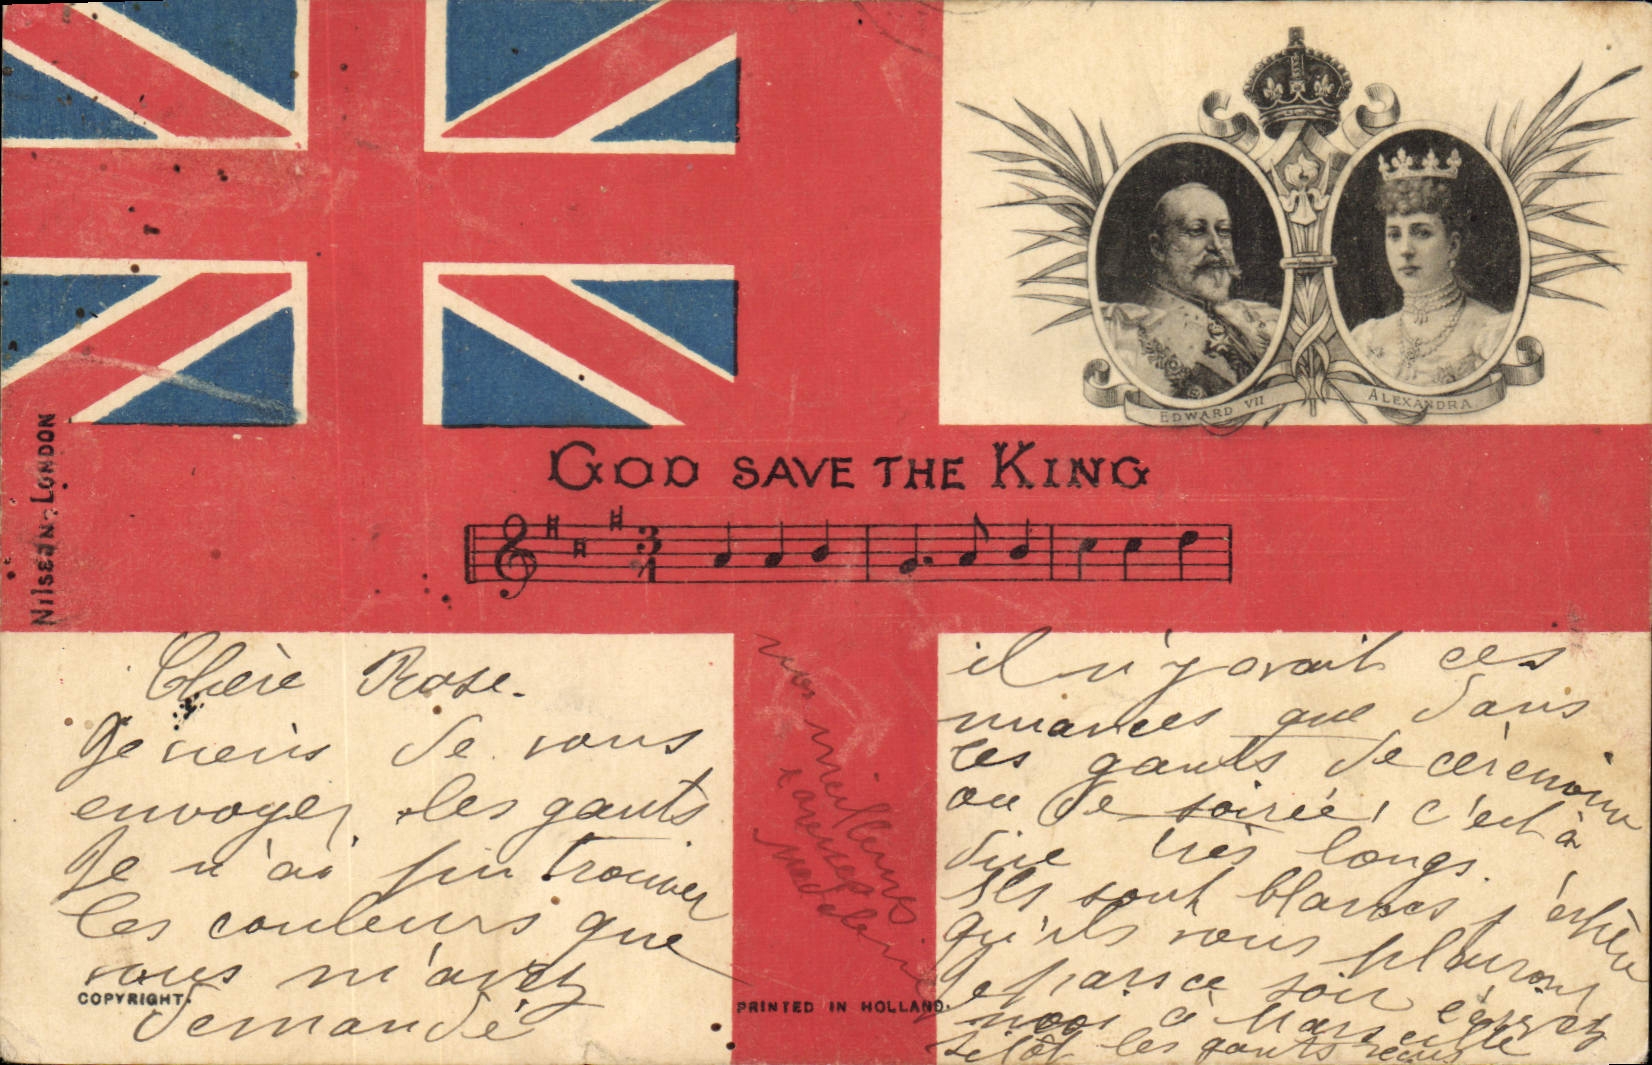 EDWARD VII
ALEXANDRA
GOD SAVE THE KING
Nilsson: London
Chère Rose.
Je viens de vous
envoyer les gants
Je n'ai pu trouver
les couleurs que
vous m'avez
demandé
COPYRIGHT.
il n'y avait ces
nuances que dans
les gants de cérémonie
ou de soirée, c'est à
dire très longs.
Ils sont blancs j'espère
qu'ils vous plairont
Je parsce soir écrivez
moi à Marseille
sitôt les gants reçus
mes meilleures
caresses
Madeleine
PRINTED IN HOLLAND.